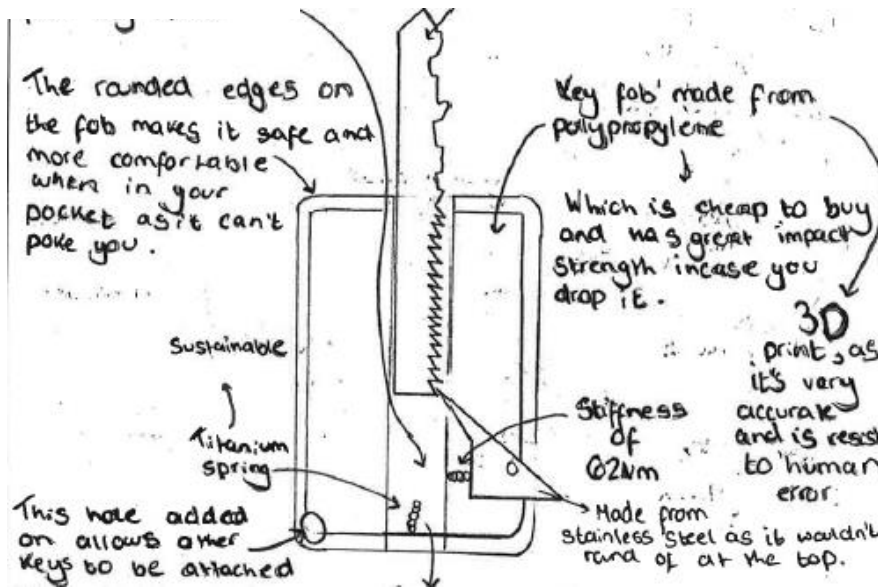 The rounded edges on
the fob makes it safe and
more comfortable
when in your
pocket as it can't
poke you.
Key fob made from
polypropylene
Which is cheap to buy
and has great impact
strength incase you
drop it.
3D
print, as
it's very
accurate
and is resist
to human
error
Sustainable
Titanium
spring
Stiffness
of
62Nm
This hole added
on allows other
keys to be attached
Made from
stainless steel as it wouldn't
round of at the top.